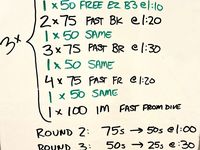 1 x 50 FREE EZ B3 @ 1:10
2 x 75 FAST BK @ 1:20
1 x 50 SAME
3x
3 x 75 FAST BR @ 1:30
1 x 50 SAME
4 x 75 FAST FR @ 1:20
1 x 50 SAME
1 x 100 IM FAST FROM DIVE
ROUND 2: 75s → 50s @ 1:00
ROUND 3: 50s → 25s @ :30